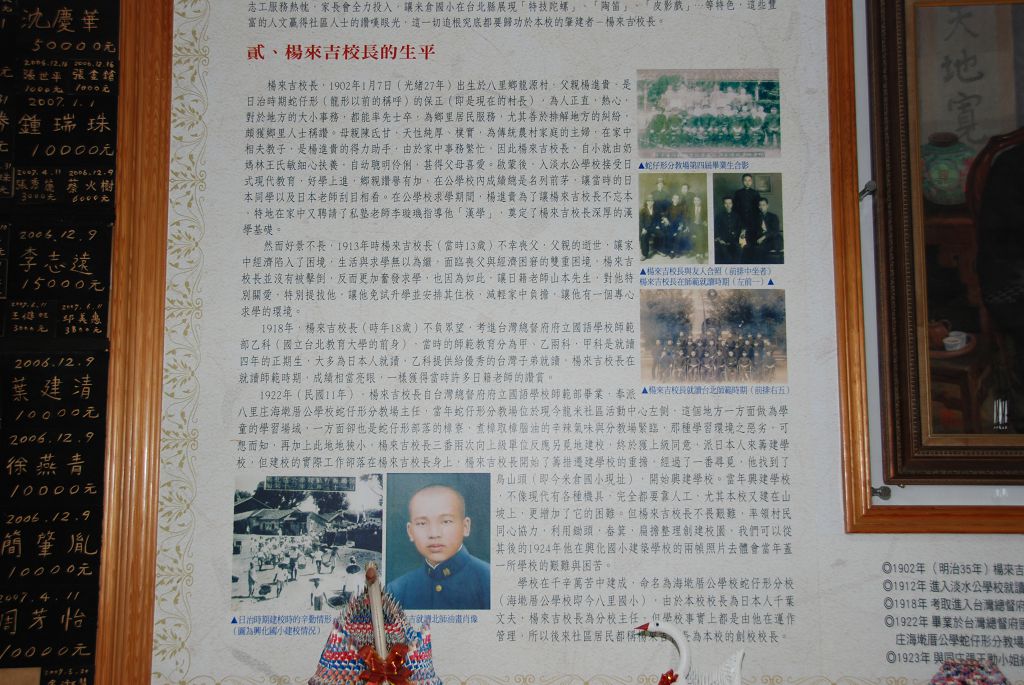 沈慶華
50000元
2006.12.16
張世平
1000元
2006.12.16
張書鎧
1000元
2007.1.1
鍾瑞珠
10000元
2007.4.11
張秀蓮
3000元
2006.12.9
蔡火樹
6000元
2006.12.9
李志遠
15000元
邱美惠
3800元
3000元
2006.12.9
葉建清
10000元
2006.12.9
徐燕青
10000元
2006.12.9
簡肇胤
10000元
2007.4.11
周芳怡
10000元
志工服務熱忱,家長會全力投入,讓米倉國小在台北縣展現「特技陀螺」、「陶笛」、「皮影戲」…等特色,這些豐
富的人文贏得社區人士的讚嘆眼光,這一切追根究底都要歸功於本校的肇建者—楊來吉校長。
貳、楊來吉校長的生平
楊來吉校長,1902年1月7日(光緒27年)出生於八里鄉龍源村,父親楊進貴,是
日治時期蛇仔形(龍形以前的稱呼)的保正(即是現在的村長),為人正直,熱心,
對於地方的大小事務,都能率先士卒,為鄉里居民服務,尤其善於排解地方的糾紛,
頗獲鄉里人士稱讚。母親陳氏甘,天性純厚,樸實,為傳統農村家庭的主婦,在家中
相夫教子,是楊進貴的得力助手,由於家中事務繁忙,因此楊來吉校長,自小就由奶
媽林王氏敏細心扶養,自幼聰明伶俐,甚得父母喜愛。啟蒙後,入淡水公學校接受日
式現代教育,好學上進,鄉親讚譽有加,在公學校內成績總是名列前茅,讓當時的日
本同學以及日本老師刮目相看。在公學校求學期間,楊進貴為了讓楊來吉校長不忘本
,特地在家中又聘請了私塾老師李璇璣指導他「漢學」,奠定了楊來吉校長深厚的漢
學基礎。
然而好景不長,1913年時楊來吉校長(當時13歲)不幸喪父,父親的逝世,讓家
中經濟陷入了困境,生活與求學無以為繼,面臨喪父與經濟困窘的雙重困境,楊來吉
校長並沒有被擊倒,反而更加奮發求學,也因為如此,讓日籍老師山本先生,對他特
別關愛,特別提拔他,讓他免試升學並安排其住校,減輕家中負擔,讓他有一個專心
求學的環境。
1918年,楊來吉校長(時年18歲)不負眾望,考進台灣總督府府立國語學校師範
部乙科(國立台北教育大學的前身),當時的師範教育分為甲、乙兩科,甲科是就讀
四年的正期生,大多為日本人就讀,乙科提供給優秀的台灣子弟就讀,楊來吉校長在
就讀師範時期,成績相當亮眼,一樣獲得當時許多日籍老師的讚賞。
1922年(民國11年),楊來吉校長自台灣總督府府立國語學校師範部畢業,奉派
八里庄海墘厝公學校蛇仔形分教場主任,當年蛇仔形分教場位於現今龍米社區活動中心左側,這個地方一方面做為學
童的學習場域,一方面卻也是蛇仔形部落的樟寮,煮樟取樟腦油的辛辣氣味與分教場緊臨,那種學習環境之惡劣,可
想而知,再加上此地地狹小,楊來吉校長三番兩次向上級單位反應另覓地建校,終於獲上級同意,派日本人來籌建學
校,但建校的實際工作部落在楊來吉校長身上,楊來吉校長開始了籌措遷建學校的重擔,經過了一番尋覓,他找到了
烏山頭(即今米倉國小現址),開始興建學校。當年興建學校
,不像現代有各種機具,完全都要靠人工,尤其本校又建在山
坡上,更增加了它的困難。但楊來吉校長不畏艱難,率領村民
同心協力,利用鋤頭,畚箕,扁擔整理創建校園,我們可以從
其後的1924年他在興化國小建築學校的兩幀照片去體會當年蓋
一所學校的艱難與困苦。
學校在千辛萬苦中建成,命名為海墘厝公學校蛇仔形分校
(海墘厝公學校即今八里國小),由於本校校長為日本人千葉
丈夫,楊來吉校長為分校主任,但學校事實上都是由他在運作
管理,所以後來社區居民都稱楊來吉
為本校的創校校長。
▲蛇仔形分教場第四屆畢業生合影
▲楊來吉校長與友人合照(前排中坐者)
楊來吉校長在師範就讀時期(左前一)▲
▲楊來吉校長就讀台北師範時期(前排右五)
▲日治時期建校時的辛勤情形
(圖為興化國小建校情況)
吉就讀北師油畫肖像
天地寬
◎1902年(明治35年)楊來吉
◎1912年 進入淡水公學校就讀
◎1918年 考取進入台灣總督府
◎1922年 畢業於台灣總督府
庄海墘厝公學蛇仔形分教場
◎1923年 與同庄張
小姐